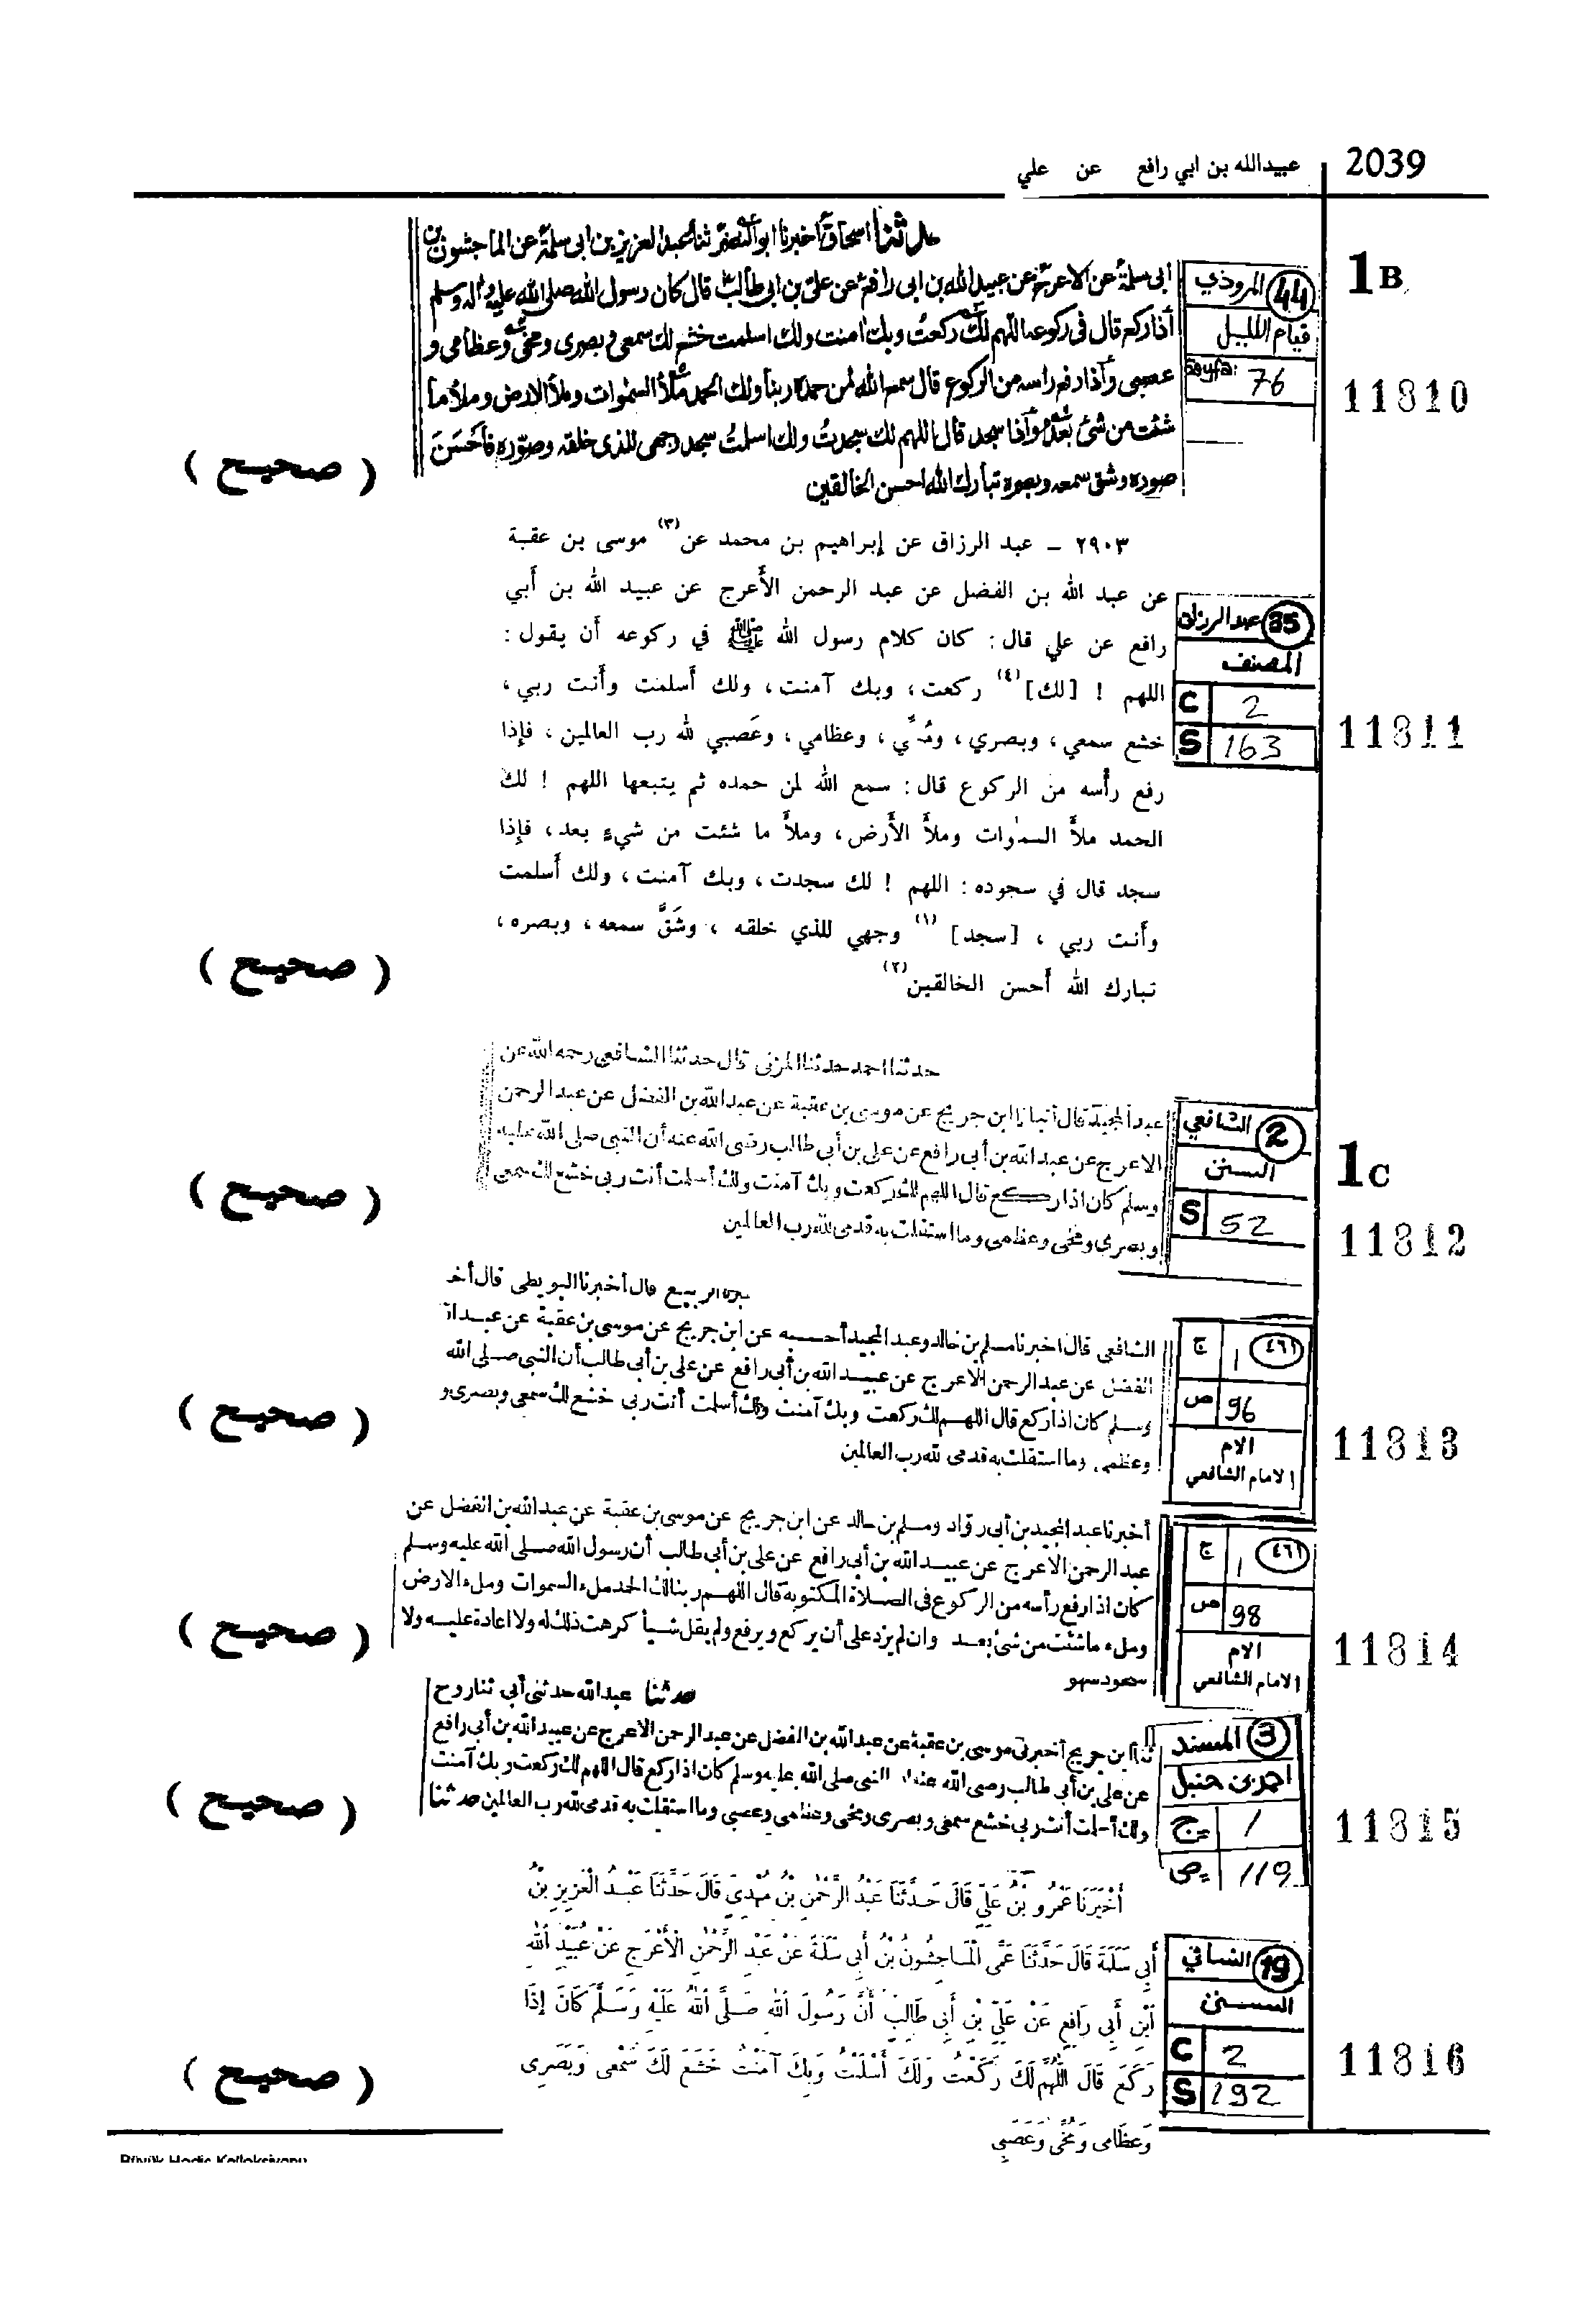 2039 عبيدالله بن ابي رافع عن علي
1B
حدثنا اسحاق اخبرنا ابو النضر ثنا عبد العزيز بن ابى سلمة عن الماجشون بن
ابى سلمة عن الاعرج عن عبيد الله بن ابى رافع عن على بن ابى طالب قال كان رسول الله صلى الله عليه واله وسلم
اذا ركع قال فى ركوعه اللهم لك ركعت وبك امنت ولك اسلمت خشع لك سمعى وبصرى ومخى وعظامى و
عصبى وأذا رفع راسه من الركوع قال سمع الله لمن حمده ربنا ولك الحمد ملأ السموات وملأ الارض وملأ ما
شئت من شئ بعد وأذا سجد قال اللهم لك سجدت ولك اسلمت سجد وجهى للذى خلقه وصوره فاحسن
صوره وشق سمعه وبصره تبارك الله احسن الخالقين
44 المروذي
قيام الليل
Sayfa: 76
11810
( صحيح )
٢٩٠٣ – عبد الرزاق عن إبراهيم بن محمد عن (٣) موسى بن عقبة
عن عبد الله بن الفضل عن عبد الرحمن الأعرج عن عبيد الله بن أبي
رافع عن علي قال: كان كلام رسول الله ﷺ في ركوعه أن يقول:
اللهم ! [لك] (٤) ركعت، وبك آمنت، ولك أسلمت وأنت ربي،
خشع سمعي، وبصري، ومُخّي، وعظامي، وعَصبي لله رب العالمين، فإذا
رفع رأسه من الركوع قال: سمع الله لمن حمده ثم يتبعها اللهم ! لك
الحمد ملأَ السموات وملأَ الأَرض، وملأَ ما شئت من شيءٍ بعد، فإذا
سجد قال في سجوده: اللهم ! لك سجدت، وبك آمنت، ولك أسلمت
وأنت ربي، [سجد] (١) وجهي للذي خلقه، وشَقَّ سمعه، وبصره،
تبارك الله أحسن الخالقين (٢)
35 عبد الرزاق
المصنف
C 2
S 163
11811
( صحيح )
حدثنا احمد حدثنا المزنى قال حدثنا الشافعى رحمه الله عن
عبد المجيد قال أنبانا ابن جريج عن موسى بن عقبة عن عبد الله بن الفضل عن عبد الرحمن
الاعرج عن عبد الله بن أبى رافع عن على بن أبى طالب رضى الله عنه أن النبى صلى الله عليه
وسلم كان اذا ركع قال اللهم لك ركعت وبك آمنت ولك أسلمت أنت ربى خشع لك سمعى
وبصرى ومخى وعظمى وما استقلت به قدمى لله رب العالمين
2 الشافعي
السنن
S 52
1C
11812
( صحيح )
الربيع قال أخبرنا البويطى قال أخـ
الشافعى قال اخبرنا مسلم بن خالد وعبد المجيد أحسبه عن ابن جريج عن موسى بن عقبة عن عبد الله
الفضل عن عبد الرحمن الاعرج عن عبيد الله بن أبى رافع عن على بن أبى طالب أن النبى صلى الله
وسلم كان اذا ركع قال اللهم لك ركعت وبك آمنت ولك أسلمت أنت ربى خشع لك سمعى وبصرى و
وعظمى وما استقلت به قدمى لله رب العالمين
٤٦١ ج ١
ص 96
الام
الامام الشافعي
11813
( صحيح )
أخبرنا عبد المجيد بن أبى رواد ومسلم بن خالد عن ابن جريج عن موسى بن عقبة عن عبد الله بن الفضل عن
عبد الرحمن الاعرج عن عبيد الله بن أبى رافع عن على بن أبى طالب أن رسول الله صلى الله عليه وسلم
كان اذا رفع رأسه من الركوع فى الصلاة المكتوبة قال اللهم ربنا لك الحمد ملء السموات وملء الارض
وملء ما شئت من شئ بعد وان لم يزد على أن يركع ويرفع ولم يقل شيأ كرهت ذلك له ولا اعادة عليه ولا
سجود سهو
٤٦١ ج ١
ص 98
الام
الامام الشافعي
11814
( صحيح )
حدثنا عبد الله حدثنى أبى ثنا روح
ثنا ابن جريج أخبرنى موسى بن عقبة عن عبد الله بن الفضل عن عبد الرحمن الاعرج عن عبيد الله بن أبى رافع
عن على بن أبى طالب رضى الله عنه النبى صلى الله عليه وسلم كان اذا ركع قال اللهم لك ركعت وبك آمنت
ولك أسلمت أنت ربى خشع سمعى وبصرى ومخى وعظامى وعصبى وما استقلت به قدمى لله رب العالمين حدثنا
3 المسند
احمد بن حنبل
ج 1
ص 119
11815
( صحيح )
أَخْبَرَنَا عَمْرُو بْنُ عَلِيٍّ قَالَ حَدَّثَنَا عَبْدُ الرَّحْمٰنِ بْنُ مَهْدِيٍّ قَالَ حَدَّثَنَا عَبْدُ الْعَزِيزِ بْنُ
أَبِي سَلَمَةَ قَالَ حَدَّثَنَا عَمِّى الْمَاجِشُونُ بْنُ أَبِي سَلَمَةَ عَنْ عَبْدِ الرَّحْمٰنِ الْأَعْرَجِ عَنْ عُبَيْدِ اللهِ
ابْنِ أَبِي رَافِعٍ عَنْ عَلِيِّ بْنِ أَبِي طَالِبٍ أَنَّ رَسُولَ اللهِ صَلَّى اللهُ عَلَيْهِ وَسَلَّمَ كَانَ إِذَا
رَكَعَ قَالَ اللّٰهُمَّ لَكَ رَكَعْتُ وَلَكَ أَسْلَمْتُ وَبِكَ آمَنْتُ خَشَعَ لَكَ سَمْعِى وَبَصَرِى
وَعِظَامِى وَمُخِّى وَعَصَبِى
19 النسائي
السنن
C 2
S 192
11816
( صحيح )
Büyük Hadis Kolleksiyonu